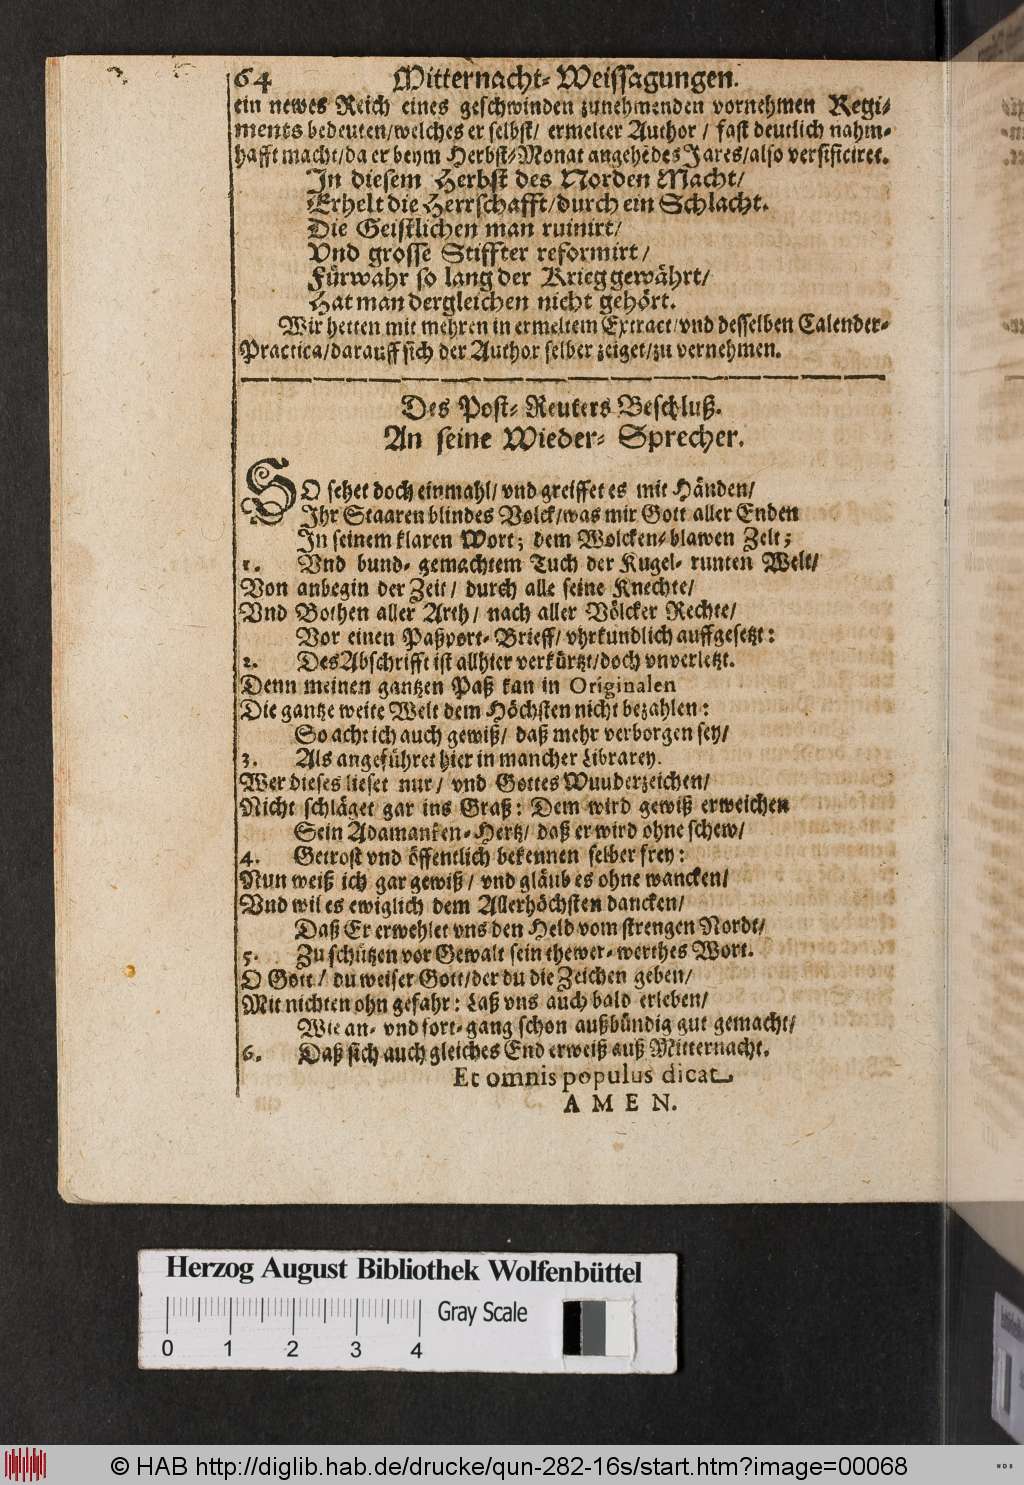 64 Mitternacht-Weissagungen.
ein newes Reich eines geschwinden zunehmenden vornehmen Regi-
ments bedeuten/welches er selbst/ ermelter Author / fast deutlich nahm-
hafft macht/da er beym Herbst-Monat angehēdes Jares/also versificiret.
In diesem Herbst des Norden Macht/
Erhelt die Herrschafft/durch ein Schlacht.
Die Geistlichen man ruinirt/
Vnd grosse Stiffter reformirt/
Fürwahr so lang der Krieg gewährt/
Hat man dergleichen nicht gehört.
Wir hetten mit mehren in ermeltem Extract/vnd desselben Calender-
Practica/darauff sich der Author selber zeiget/zu vernehmen.
Des Post-Reuters Beschluß.
An seine Wieder-Sprecher.
SO sehet doch einmahl/ vnd greiffet es mit Händen/
Ihr Staaren blindes Volck/was mir Gott aller Enden
In seinem klaren Wort; dem Wolcken-blawen Zelt;
1. Vnd bund-gemachtem Tuch der Kugel-runten Welt/
Von anbegin der Zeit/ durch alle seine Knechte/
Vnd Bothen aller Arth/ nach aller Völcker Rechte/
Vor einen Paßport-Brieff/ vhrkundlich auffgesetzt:
2. Des Abschrifft ist allhier verkürtzt/doch vnverletzt.
Denn meinen gantzen Paß kan in Originalen
Die gantze weite Welt dem Höchsten nicht bezahlen:
So acht ich auch gewiß/ daß mehr verborgen sey/
3. Als angeführet hier in mancher Librarey.
Wer dieses lieset nur/ vnd Gottes Wuuderzeichen/
Nicht schläget gar ins Graß: Dem wird gewiß erweichen
Sein Adamanten-Hertz/ daß er wird ohne schew/
4. Getrost vnd öffentlich bekennen selber frey:
Nun weiß ich gar gewiß/ vnd gläub es ohne wancken/
Vnd wil es ewiglich dem Allerhöchsten dancken/
Daß Er erwehlet vns den Held vom strengen Nordt/
5. Zu schützen vor Gewalt sein thewer-werthes Wort.
O Gott/ du weiser Gott/der du die Zeichen geben/
Mit nichten ohn gefahr: Laß vns auch bald erleben/
Wie an- vnd fort-gang schon außbündig gut gemacht/
6. Daß sich auch gleiches End erweiß auß Mitternacht.
Et omnis populus dicat
AMEN.
Herzog August Bibliothek Wolfenbüttel
Gray Scale
0 1 2 3 4
© HAB http://diglib.hab.de/drucke/qun-282-16s/start.htm?image=00068